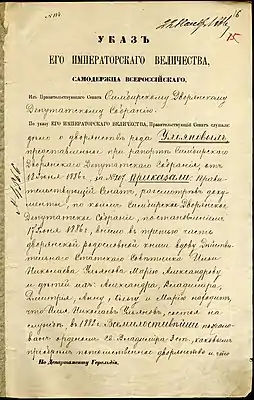 22 Нояб. 1886
УКАЗЪ
ЕГО ИМПЕРАТОРСКАГО ВЕЛИЧЕСТВА,
САМОДЕРЖЦА ВСЕРОССІЙСКАГО,
Изъ Правительствующаго Сената Симбирскому Дворянскому
Депутатскому Собранію.
По указу ЕГО ИМПЕРАТОРСКАГО ВЕЛИЧЕСТВА, Правительствующій Сенатъ слушали:
дѣло о дворянствѣ рода Ульяновыхъ,
представленное при рапортѣ Симбирскаго
Дворянскаго Депутатскаго Собранія, отъ
1886 г. за № Приказали: Прави-
тельствующій Сенатъ, разсмотрѣвъ доку-
менты, по коимъ Симбирское Дворянское
Депутатское Собраніе, постановленіемъ
17 Іюня 1886 г., внесло въ третью часть
дворянской родословной книги вдову Дѣйстви-
тельнаго Статскаго Совѣтника Ильи
Николаева Ульянова Марію Александрову
и дѣтей ихъ: Александра, Владиміра,
Дмитрія, Анну, Ольгу и Марію находитъ,
что Илья Николаевъ Ульяновъ, состоя на
службѣ, въ 1882 г. Всемилостивѣйше пожало-
ванъ орденомъ Св. Владиміра 3 ст., каковымъ
потомственное дворянство и что
По Департаменту Герольдіи.